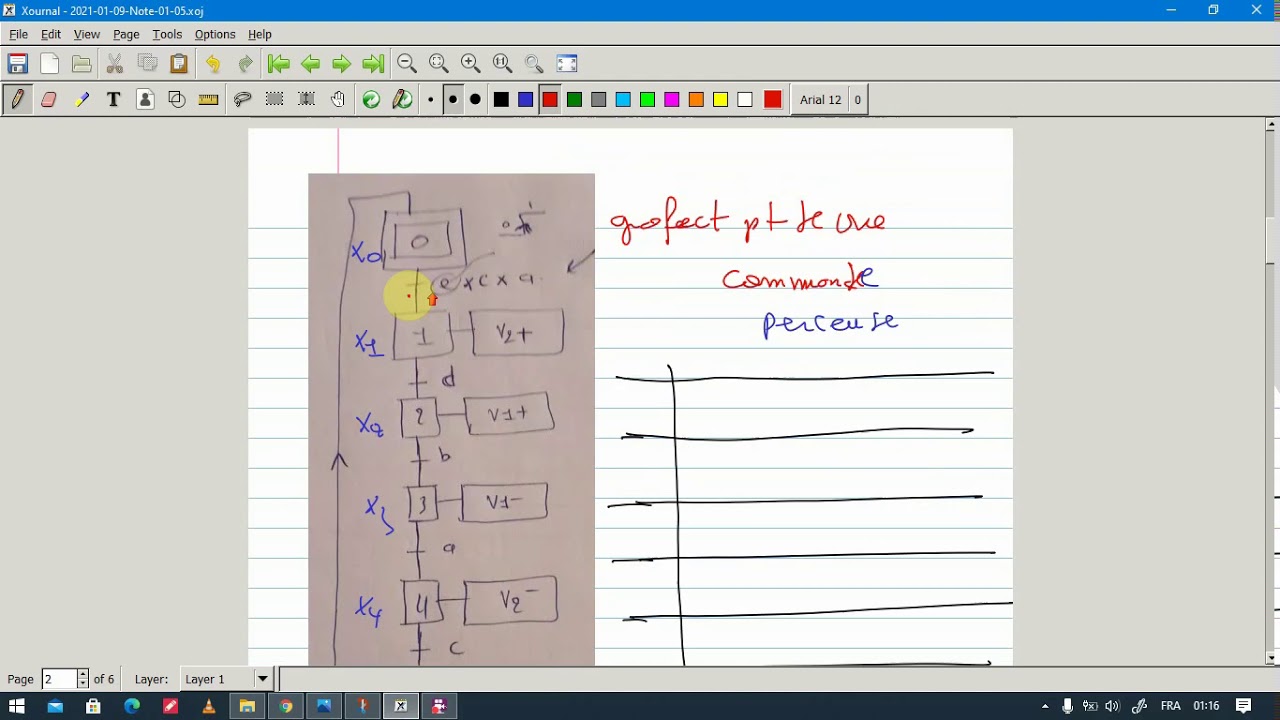 Xournal - 2021-01-09-Note-01-05.xoj
File Edit View Page Tools Options Help
Arial 12 0
X0 0
e x c x a.
X1 1 V2+
d
X2 2 V1+
b
X3 3 V1-
a
X4 4 V2-
c
grafcet pt de vue
commande
perceuse
Page 2 of 6 Layer: Layer 1
FRA 01:16